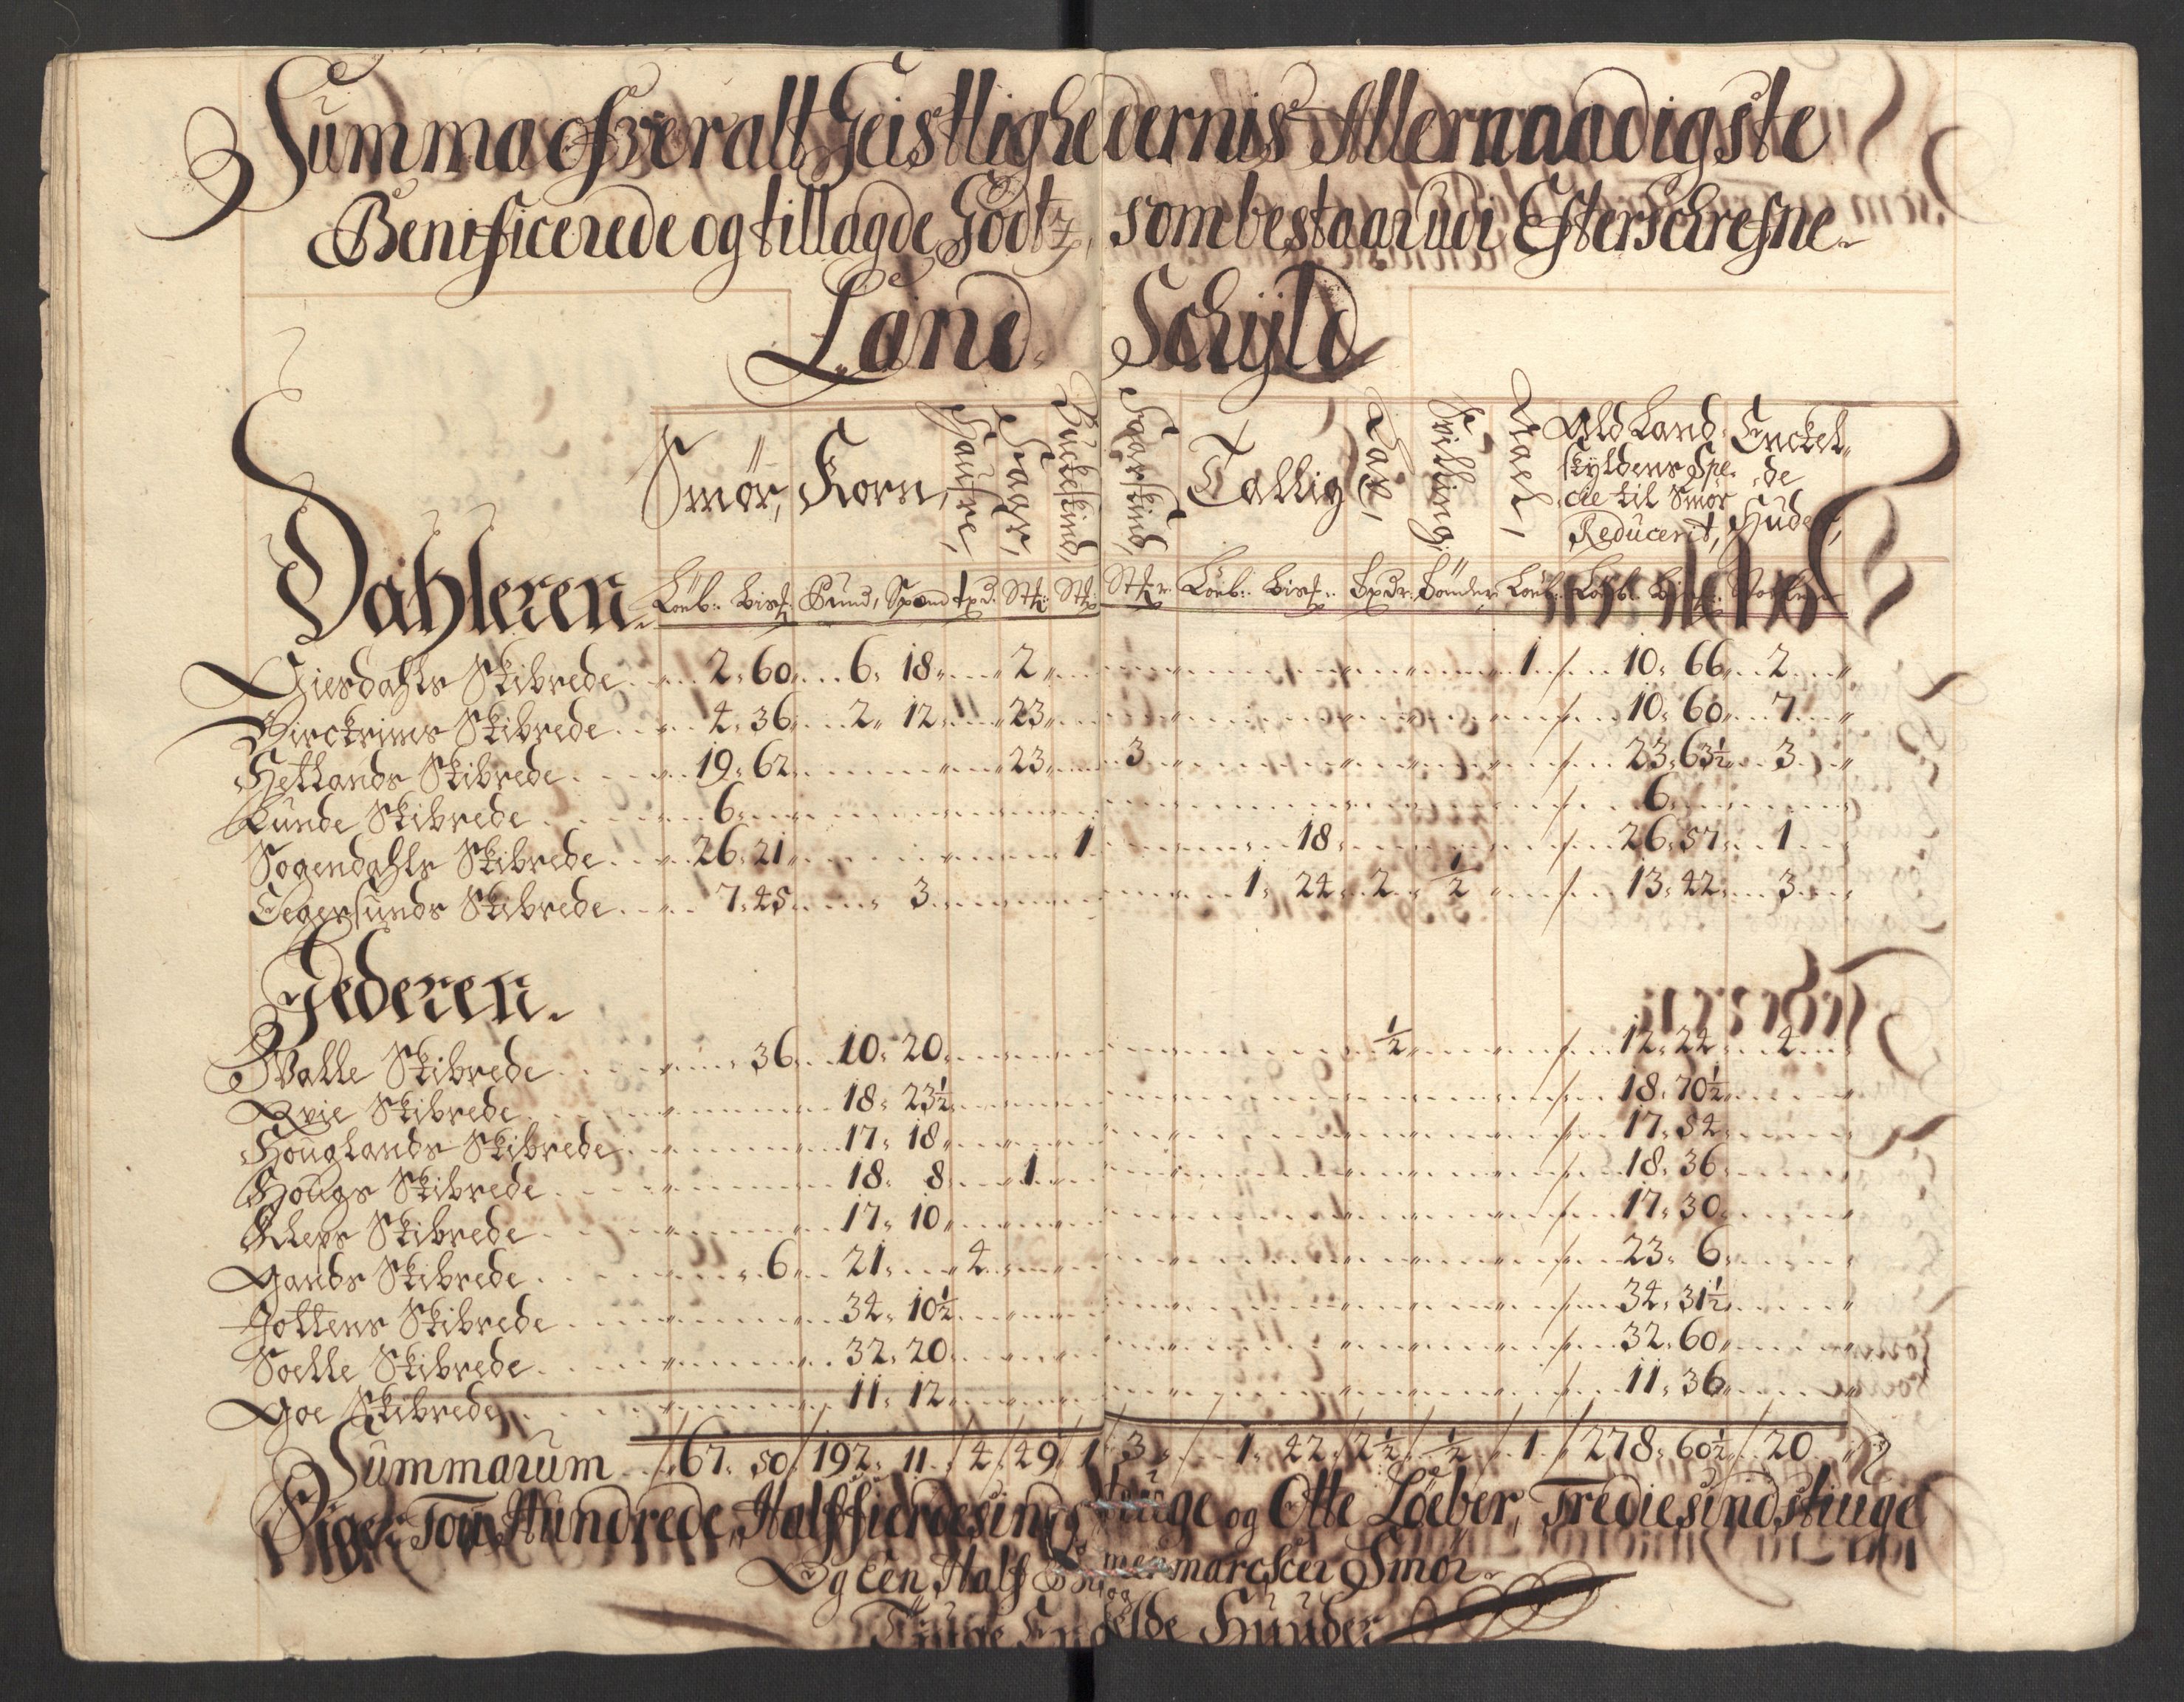 Summa ofver alt Geistlighedernis Allernaadigste
Benificerede og tillagde Godtz, som bestaar udi Efterschrefne
Land Schyld
Smør, Korn, Haufre, Faar, Buckeskind, Faarskind, Tallig, Salt, Tiælle Ald Land Enckel
skyldens Spe- de
cie til Smør Huder,
Reducerit,
Dahleren. Løeb: Bisf. Pund, Spand txd: Stk: Stk: Stkr. Løeb: Bisf: txdr. tønder Løeb: Løeb:
Giesdahls Skibrede 2. 60. 6. 18. 2. 1 10. 66. 2.
Birckrims Skibrede 4. 36. 2. 12. 23 10. 60. 7.
Hetlands Skibrede 19. 62. 23. 3 23. 63½ 3.
Lunde Skibrede 6. 6.
Sogendahls Skibrede 26. 21. 1 18. 26. 57. 1
Eegersunds Skibrede 7. 45. 3. 1. 24. 2. ½ 13. 42. 3.
Jederen.
Walle Skibrede 36. 10. 20. ½ 12. 24. 4.
Qvie Skibrede 18. 23½ 18. 70½
Houglands Skibrede 17. 18 17. 54.
Hougs Skibrede 18. 8. 1 18. 36.
Kleps Skibrede 17. 10. 17. 30.
Gands Skibrede 6. 21. 4. 23. 6.
Jottens Skibrede 34. 10½ 34. 31½
Soelle Skibrede 32. 20. 32. 60.
Goe Skibrede 11. 12 11. 36
Summarum 67. 50 / 192. 11. / 4 / 49 / 1 / 3 / 1. 42 / 2½ / ½ / 1 / 278. 60½ / 20
Siger Tou Hundrede, Halffierdesinds tiuge og Otte Løeber, Trediesindstiuge
Og Een Half Bismermarcker Smør
og
Tiuge Enckelde Huuder